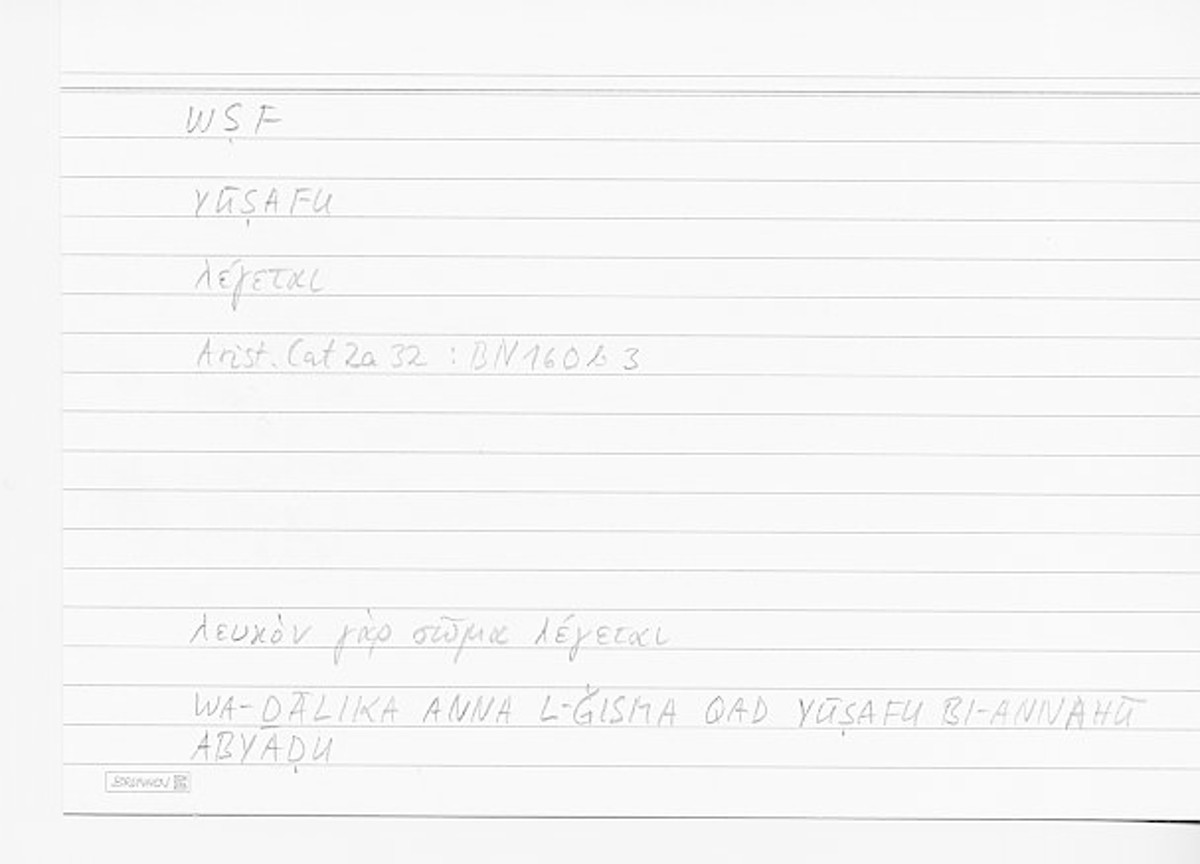 WṢF
YŪṢAFU
λέγεται
Arist. Cat 2a 32 : BN 160b 3
λευκὸν γὰρ σῶμα λέγεται
WA-ḎĀLIKA ANNA L-ǦISMA QAD YŪṢAFU BI-ANNAHŪ
ABYAḌU